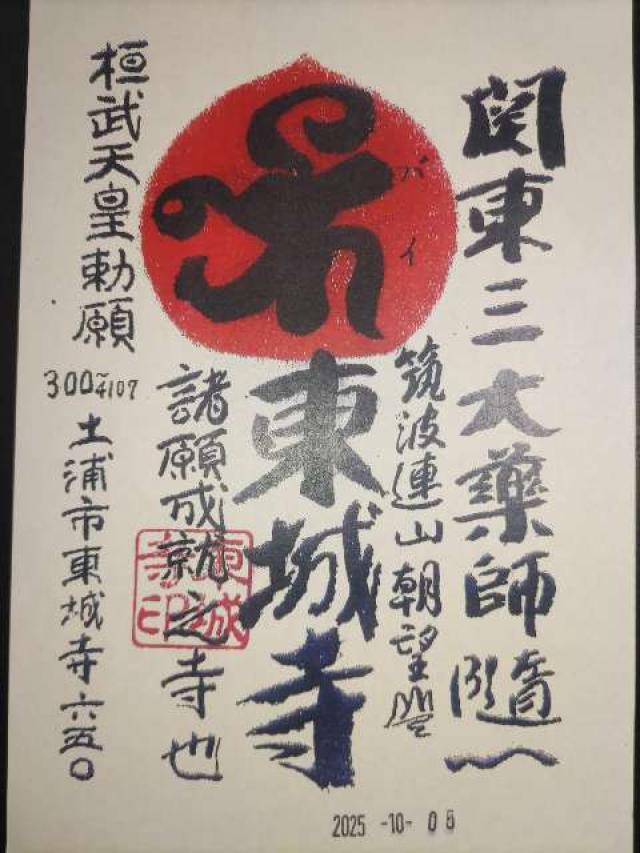 関東三大藥師隨一
バイ
筑波連山朝望
東城寺
諸願成就之寺也
東城寺印
桓武天皇勅願
300〒4107
土浦市東城寺六五〇
2025-10-05